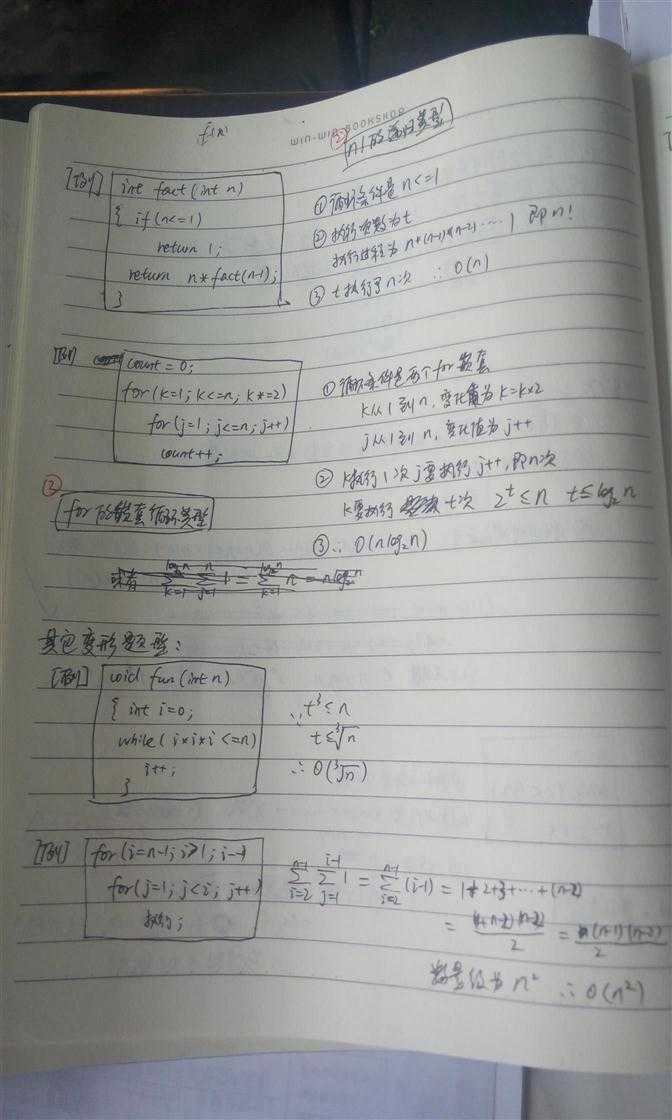 f(n)
WIN-WIN BOOKSHOP
② n!的递归类型
[例] int fact(int n)
{ if(n<=1)
return 1;
return n*fact(n-1);
}
①循环条件是n<=1
②执行次数为t
执行过程为n*(n-1)*(n-2)……1 即n!
③t执行了n次 ∴O(n)
[例] count=0;
for(k=1; k<=n; k*=2)
for(j=1; j<=n; j++)
count++;
①循环条件是两个for嵌套
k从1到n, 变化值为k=k×2
j从1到n, 变化值为j++
②k执行1次j要执行j++,即n次
k要执行t次 2^t≤n t≤log₂n
③∴O(nlog₂n)
③ for的嵌套循环类型
或者 ∑_{k=1}^{log₂n} ∑_{j=1}^{n} 1 = ∑_{k=1}^{log₂n} n = nlog₂n
其它变形题型:
[例] void fun(int n)
{ int i=0;
while(i*i*i<=n)
i++;
}
∵t³≤n
t≤∛n
∴O(∛n)
[例] for(i=n-1; i>1; i--)
for(j=1; j<i; j++)
执行;
∑_{i=2}^{n-1} ∑_{j=1}^{i-1} 1 = ∑_{i=2}^{n-1} (i-1) = 1+2+3+…+(n-2)
= 2 = (n-1)(n-2) 2
数量级为n² ∴O(n²)